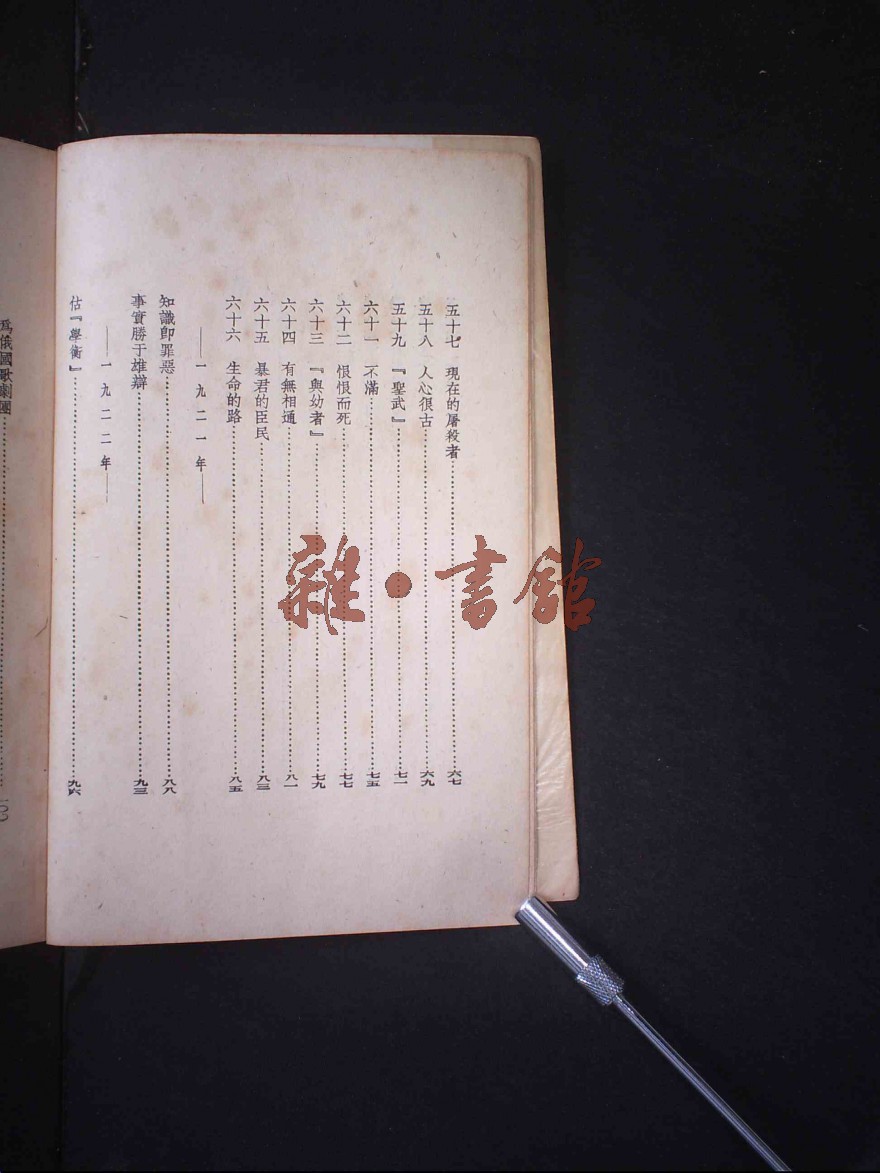 五十七 現在的屠殺者……六七
五十八 人心很古……六九
五十九 『聖武』……七一
六十一 不滿……七五
六十二 恨恨而死……七七
六十三 『與幼者』……七九
六十四 有無相通……八一
六十五 暴君的臣民……八三
六十六 生命的路……八五
——一九二一年——
知識卽罪惡……八八
事實勝于雄辯……九三
——一九二二年——
估『學衡』……九六
爲俄國歌劇團……
雜·書館